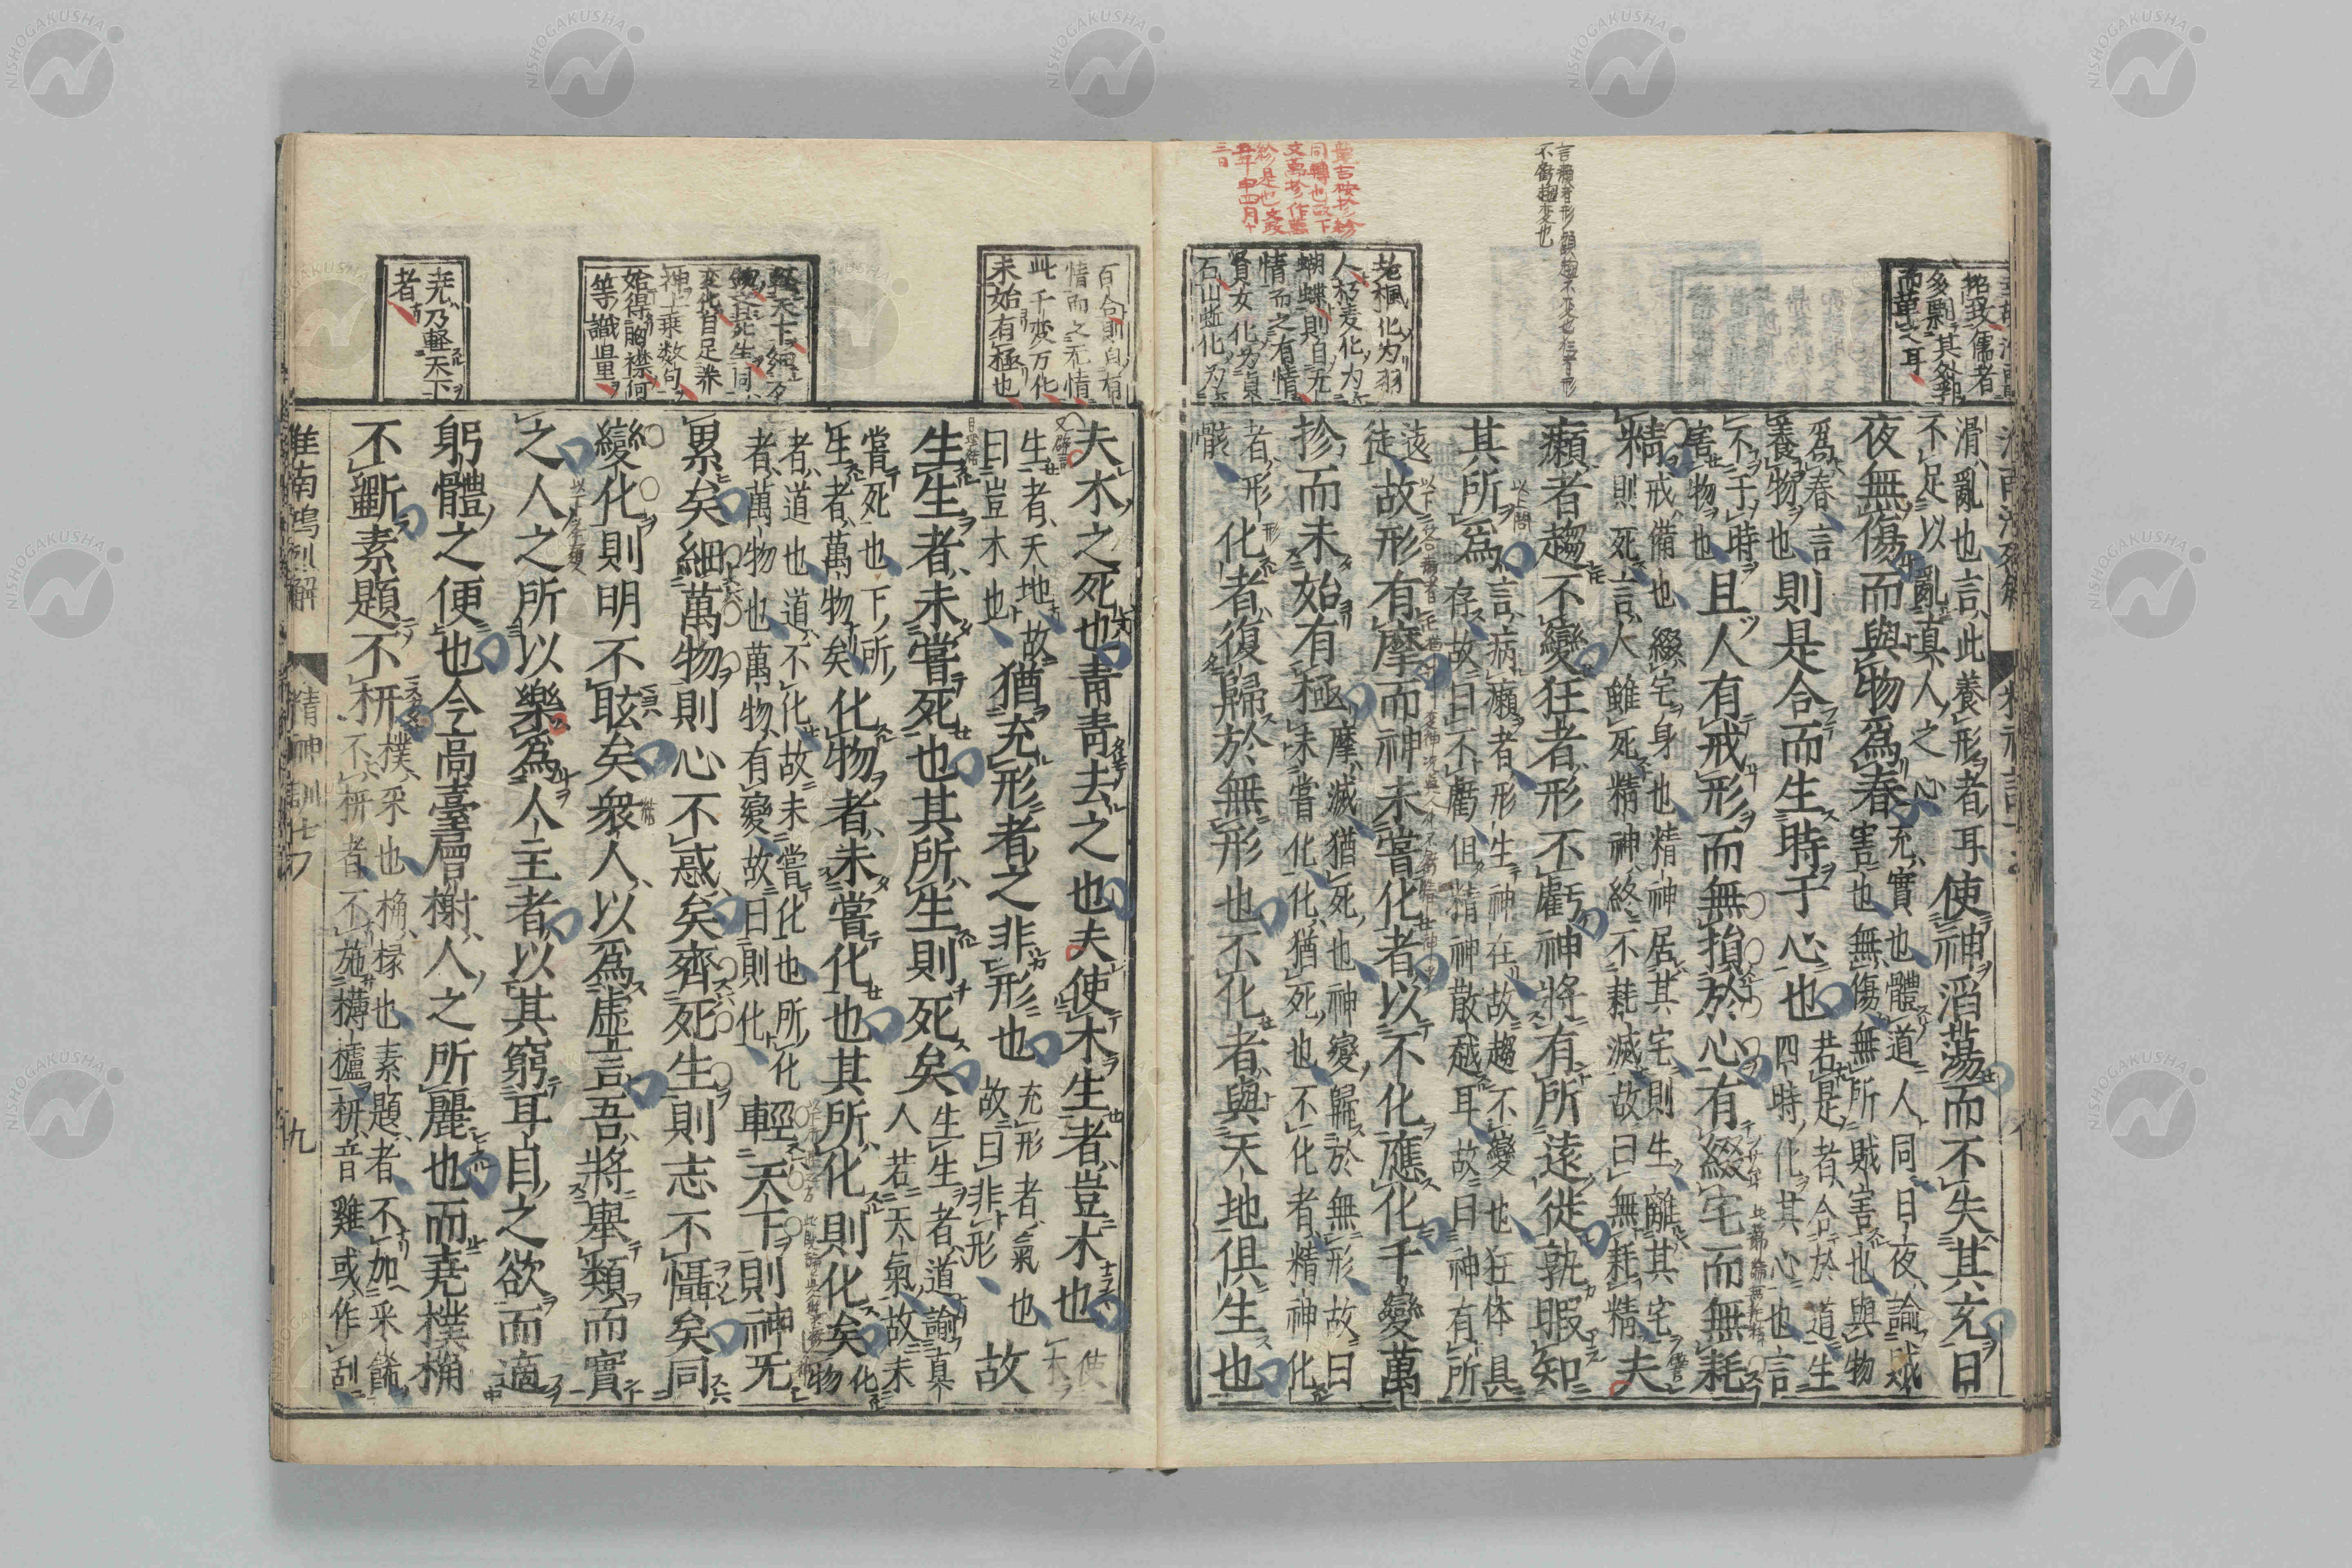 滑亂也言此養形者耳
不足以亂真人之心
使神滔蕩而不失其充日
夜無傷而與物爲春
充實也體道人同日夜諭賊
害也無傷無所賊害也與物
爲春言
養物也
則是合而生時于心也
若是者合於道生
四時化其心也言
不于時
害物也
且人有戒形而無損於心有綴宅而無耗
精
戒備也綴宅身也精神居其宅則生離其宅
則死言人雖死精神終不耗滅故曰無耗精
夫
癩者趨不變狂者形不虧神將有所遠徙孰暇知
其所爲
言病癩者形生神在故趨不變也狂体具
存故曰不虧但精神散越耳故曰神有所
遠
徙
故形有摩而神未嘗化者以不化應化千變萬
抮而未始有極
摩滅猶死也神變歸於無形故曰
未嘗化化猶死也不化者精神化
者形
骸
化者復歸於無形也不化者與天地俱生也
言癩者形
不變也
老楓化为羽
人朽麦化为
蝴蝶則自无
情而之有情
賢女化为貞
石山蚯化为
百合則自有
情而之无情
此千変万化
未始有極也
夫木之死也青青去之也夫使木生者豈木也
使木
生者天地故
曰豈木也
猶充形者之非形也
充形者氣也
故曰非形
故
生生者未嘗死也其所生則死矣
生生者道諭真
人若天氣故未
嘗死也下所
生者萬物矣
化物者未嘗化也其所化則化矣
化
物
者道也道不化故未嘗化也所化
者萬物也萬物有變故曰則化
輕天下則神无
累矣細萬物則心不惑矣齊死生則志不懾矣同
變化則明不眩矣衆人以爲虛言吾將舉類而實
之人之所以樂爲人主者以其窮耳目之欲而適
躬體之便也今高臺層榭人之所麗也而堯樸桷
不斲素題不枅
樸采也桷椽也素題者不加采餙
不枅者不施欂櫨枅音雞或作刮
神上乗数句
始得胸襟何
等識量
堯乃軽天下
者
淮南鴻烈解
精神訓七
九
NISHOGAKUSHA